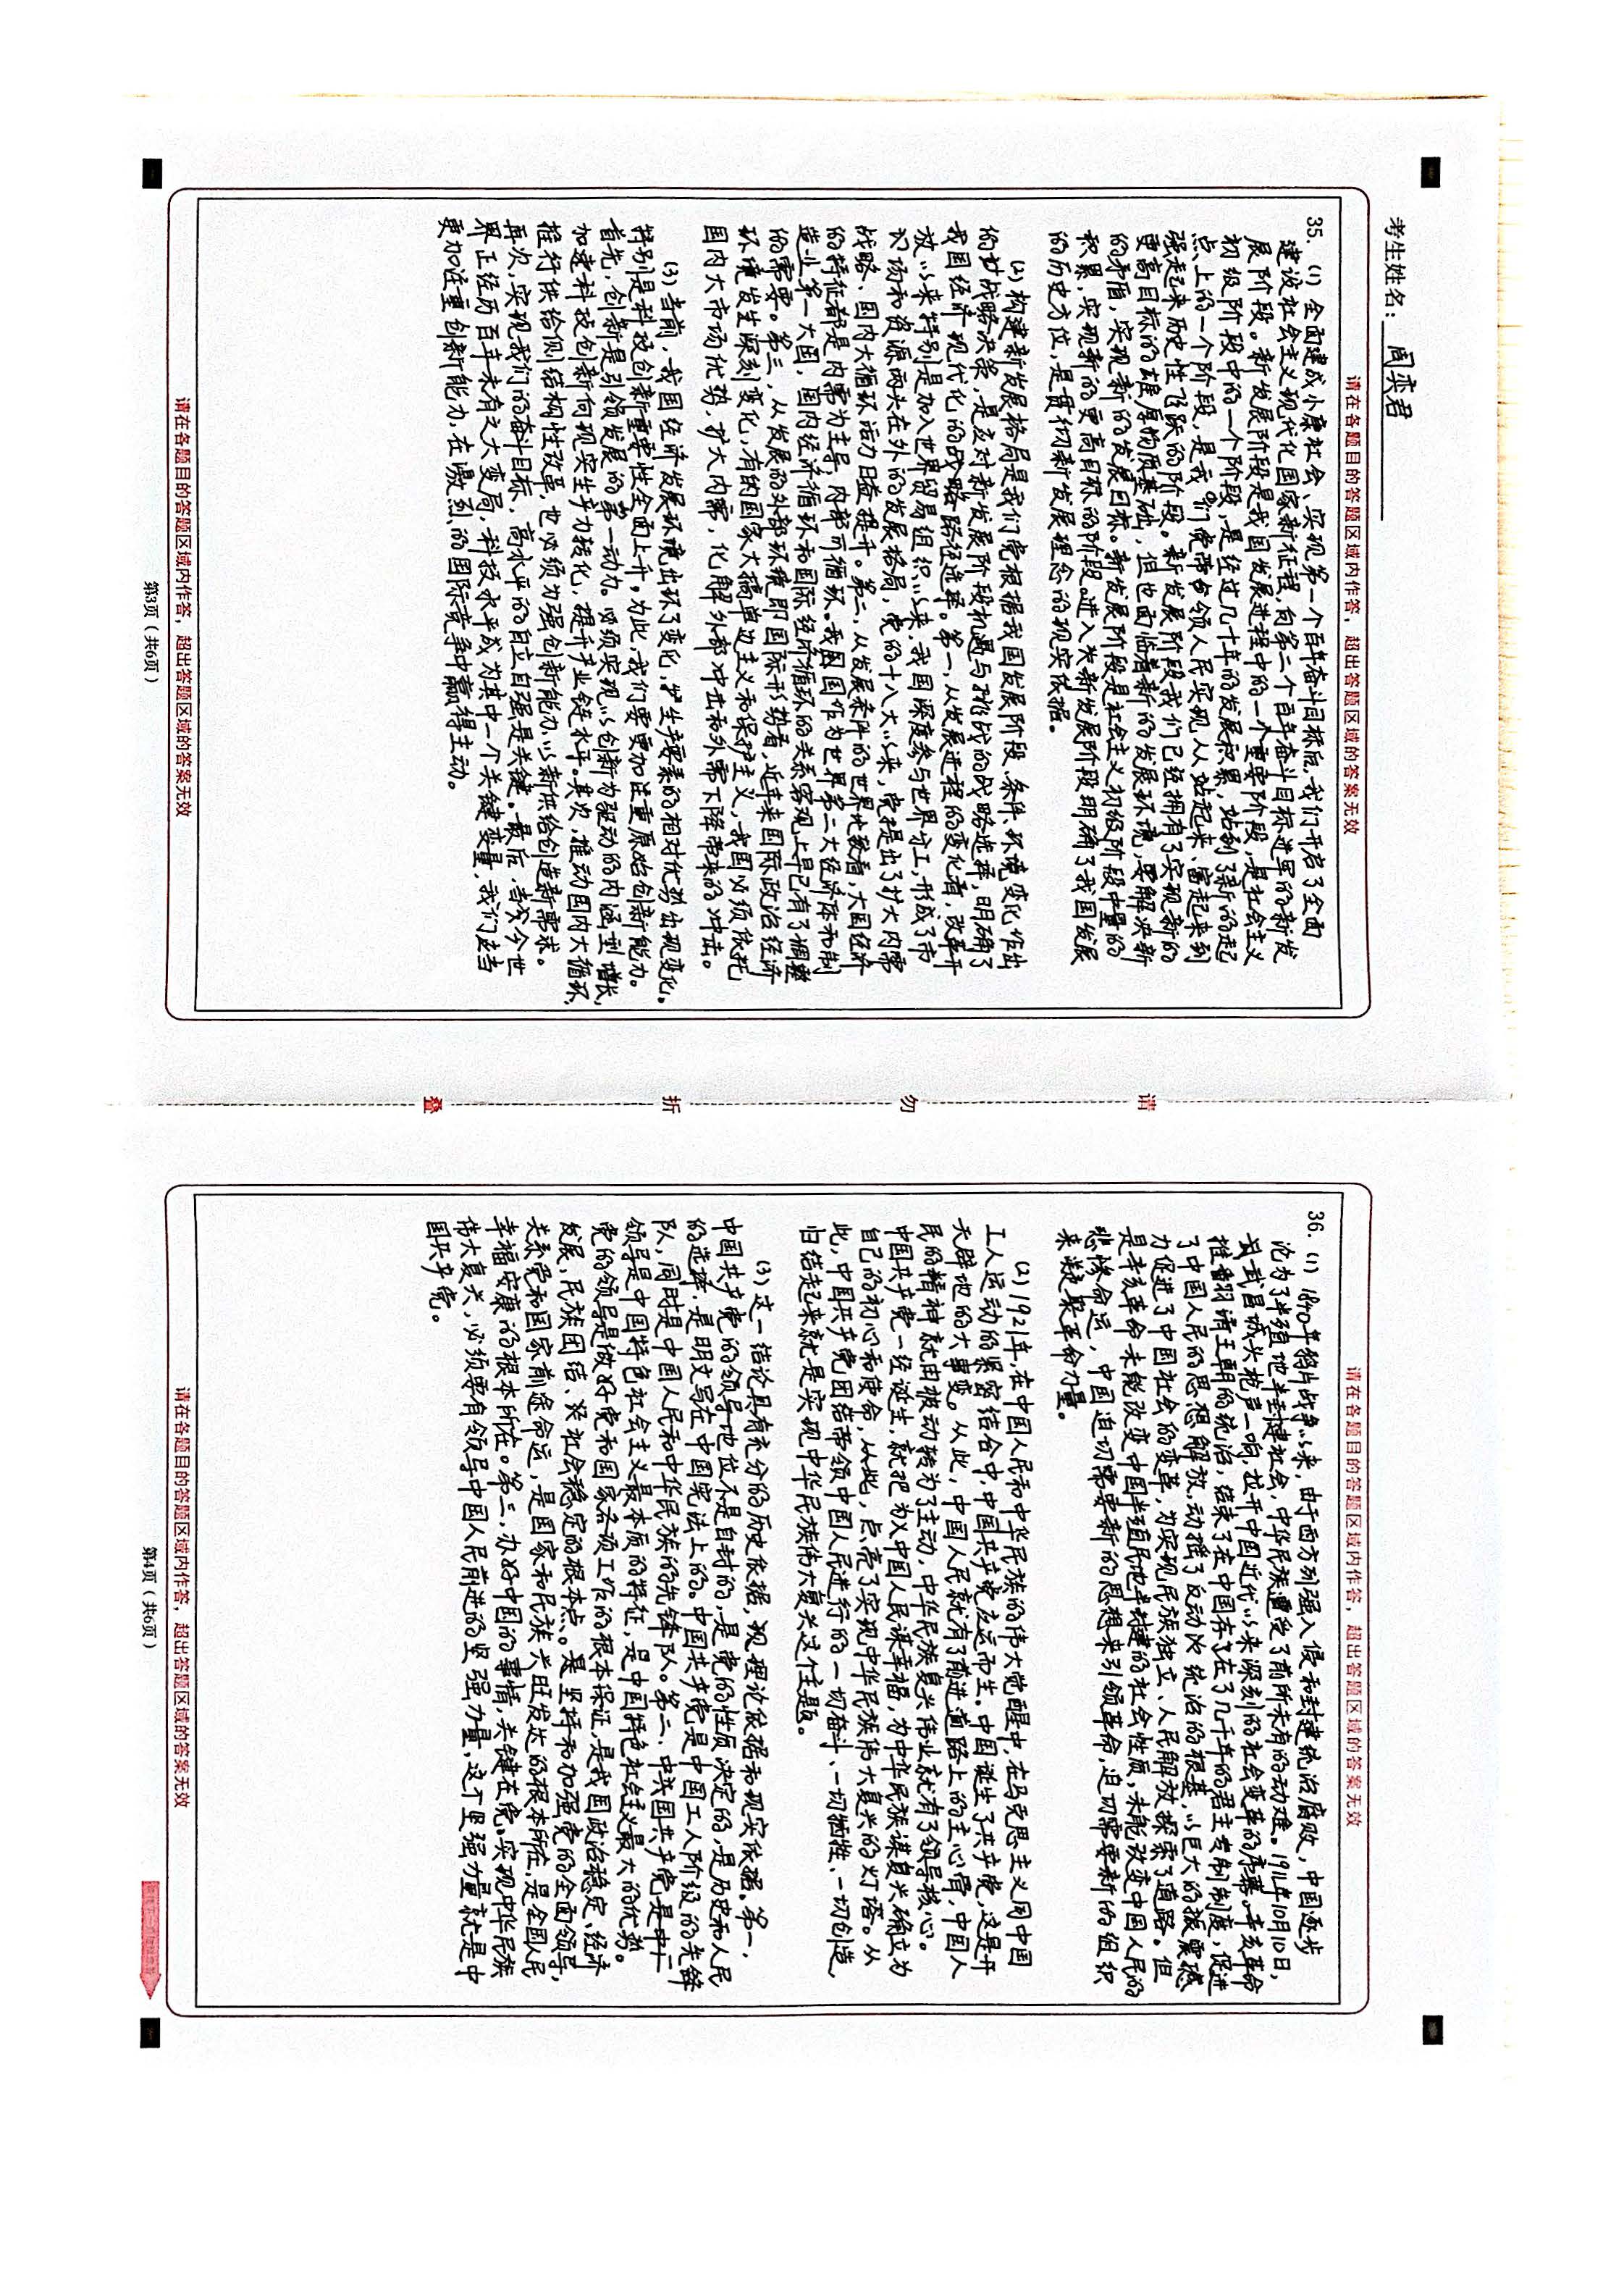 考生姓名：周奕君
请在各题目的答题区域内作答，超出答题区域的答案无效
35. (1) 全面建成小康社会、实现第一个百年奋斗目标后，我们开启了全面
建设社会主义现代化国家新征程，向第二个百年奋斗目标进军的新发
展阶段。新发展阶段是我国发展进程中的一个重要阶段，是社会主义
初级阶段中的一个阶段，是经过几十年的发展积累，站到了新的起
点上的一个阶段，是我们党带领人民实现从站起来、富起来到
强起来历史性飞跃的阶段。新发展阶段我们已经拥有了实现新的
更高目标的雄厚物质基础，但也面临着新的发展环境，要解决新
的矛盾，实现新的发展目标。新发展阶段是社会主义初级阶段中量的
积累，实现新的更高目标的阶段。进入新发展阶段明确了我国发展
的历史方位，是贯彻新发展理念的现实依据。
(2) 构建新发展格局是我们党根据我国发展阶段、条件、环境变化作出
的战略决策，是应对新发展阶段机遇与挑战的战略选择，明确了
我国经济现代化的战略路径选择。第一，从发展进程的变化看，改革开
放以来特别是加入世界贸易组织以来，我国深度参与世界分工，形成了市
场和资源两头在外的发展格局，党的十八大以来，党提出了扩大内需
战略，国内大循环活力日益提升。第二，从发展条件的世界比较看，大国经济
的特征都是内需为主导，内部可循环。我国作为世界第二大经济体和制
造业第一大国，国内经济循环和国际经济循环的关系客观上早已有了调整
的需要。第三，从发展的外部环境即国际形势看，近年来国际政治经济
环境发生深刻变化，有的国家大搞单边主义和保护主义，我国必须依托
国内大市场优势，扩大内需，化解外部冲击和外需下降带来的冲击。
(3) 当前，我国经济发展环境出环了变化，生产要素的相对优势出现变化。
特别是科技创新重要性全面上升。为此，我们要更加注重原始创新能力。
首先，创新是引领发展的第一动力。必须实现以创新为驱动的内涵型增长，
加速科技创新向现实生产力转化，提升产业链水平。其次，推动国内大循环，
推行供给侧结构性改革，也必须为强创新能力，以新供给创造新需求。
再次，实现我们的奋斗目标，高水平的自立自强是关键。最后，当今世
界正经历百年未有之大变局，科技水平成为其中一个关键变量，我们应当
更加注重创新能力，在激烈的国际竞争中赢得主动。
请在各题目的答题区域内作答，超出答题区域的答案无效
第3页（共6页）
请 勿 折 叠
请在各题目的答题区域内作答，超出答题区域的答案无效
36. (1) 1840年鸦片战争以来，由于西方列强入侵和封建统治腐败，中国逐步
沦为了半殖地半封建社会，中华民族遭受了前所未有的劫难。1911年10月10日，
武昌城头枪声一响，拉开中国近代以来深刻的社会变革的序幕。辛亥革命
推翻清王朝的统治，结束了在中国存在了几千年的君主专制制度，促进
了中国人民的思想解放，动摇了反动统治的根基，以巨大的振震撼
力促进了中国社会的变革，为实现民族独立、人民解放探索了道路。但
是辛亥革命未能改变中国半殖民地半封建的社会性质，未能改变中国人民的
悲惨命运，中国迫切需要新的思想来引领革命，迫切需要新的组织
来凝聚革命力量。
(2) 1921年，在中国人民和中华民族的伟大觉醒中，在马克思主义同中国
工人运动的紧密结合中，中国共产党应运而生。中国诞生了共产党，这是开
天辟地的大事变。从此，中国人民就有了前进道路上的主心骨，中国人
民的精神就由被动转为了主动，中华民族复兴伟业就有了领导核心。
中国共产党一经诞生，就把为中国人民谋幸福，为中华民族谋复兴确立为
自己的初心和使命，从此，点亮了实现中华民族伟大复兴的灯塔。从
此，中国共产党团结带领中国人民进行的一切奋斗、一切牺牲、一切创造，
归结起来就是实现中华民族伟大复兴这个主题。
(3) 这一结论具有充分的历史依据，理论依据和现实依据。第一，
中国共产党的领导地位不是自封的，是党的性质决定的，是历史和人民
的选择，是明文写在中国宪法上的。中国共产党是中国工人阶级的先锋
队，同时是中国人民和中华民族的先锋队。第二，中国共产党是
领导是中国特色社会主义最本质的特征，是中国特色社会主义最大的优势。
党的领导是做好党和国家各项工作的根本保证，是我国政治稳定、经济
发展、民族团结、社会稳定的根本点。是坚持和加强党的全面领导，
关系党和国家前途命运，是国家和民族兴旺发达的根本所在，是全国人民
幸福安康的根本所在。第三，办好中国的事情，关键在党。实现中华民族
伟大复兴，必须要有领导中国人民前进的坚强力量，这个坚强力量就是中
国共产党。
请在各题目的答题区域内作答，超出答题区域的答案无效
第4页（共6页）